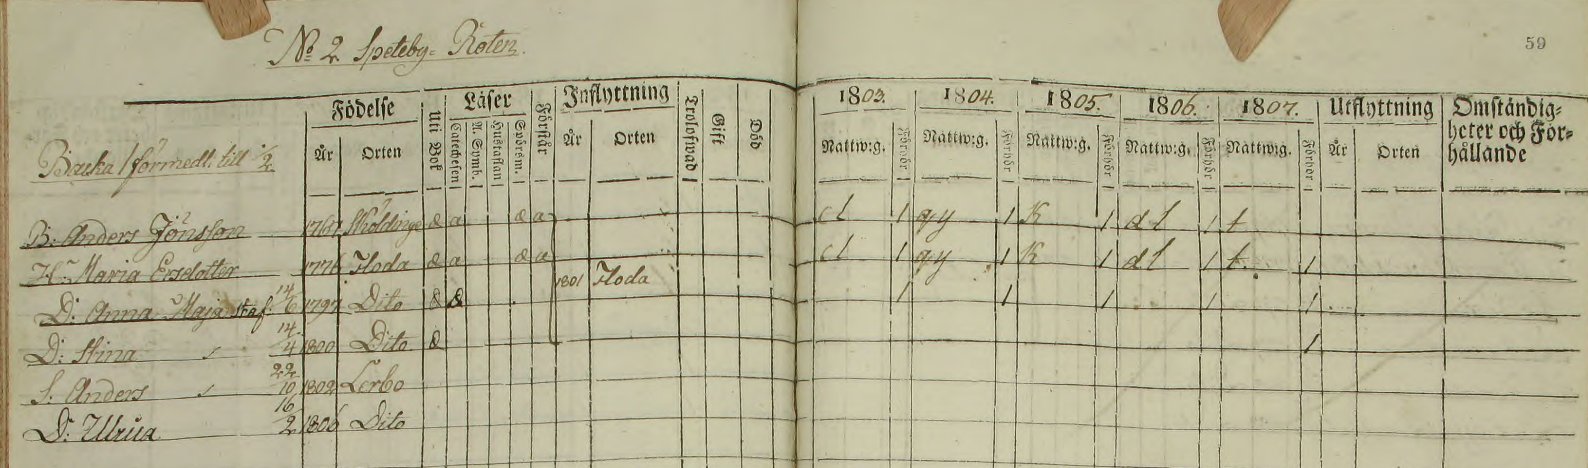 No 2 Speteby-Roten.
59
Födelse Läser Inflyttning 1803. 1804. 1805. 1806. 1807. Utflyttning Omständig-
heter och För-
hållande
År Orten Uti Bok Catechesen A. Symb. Hustaflan Spörsm. Förstår År Orten Trolofwad Gift Död Nattw:g. Förhör Nattw:g. Förhör Nattw:g. Förhör Nattw:g. Förhör Nattw:g. Förhör År Orten
Backa / förmedl. till 1/2.
B: Anders Jönsson 1767 Sköldinge a a a a cl 1 gy 1 K 1 dl 1 t
H: Maria Ersdotter 1776 Floda a a a a cl 1 gy 1 K 1 dl 1 t 1
1801 Floda
D: Anna Maja 14/6 1797 Dito a a 1 1 1 1 1
D: Stina 14/4 1800 Dito a 1
S. Anders 22/10 1802 Lerbo
D: Ulrica 16/2 1806 Dito